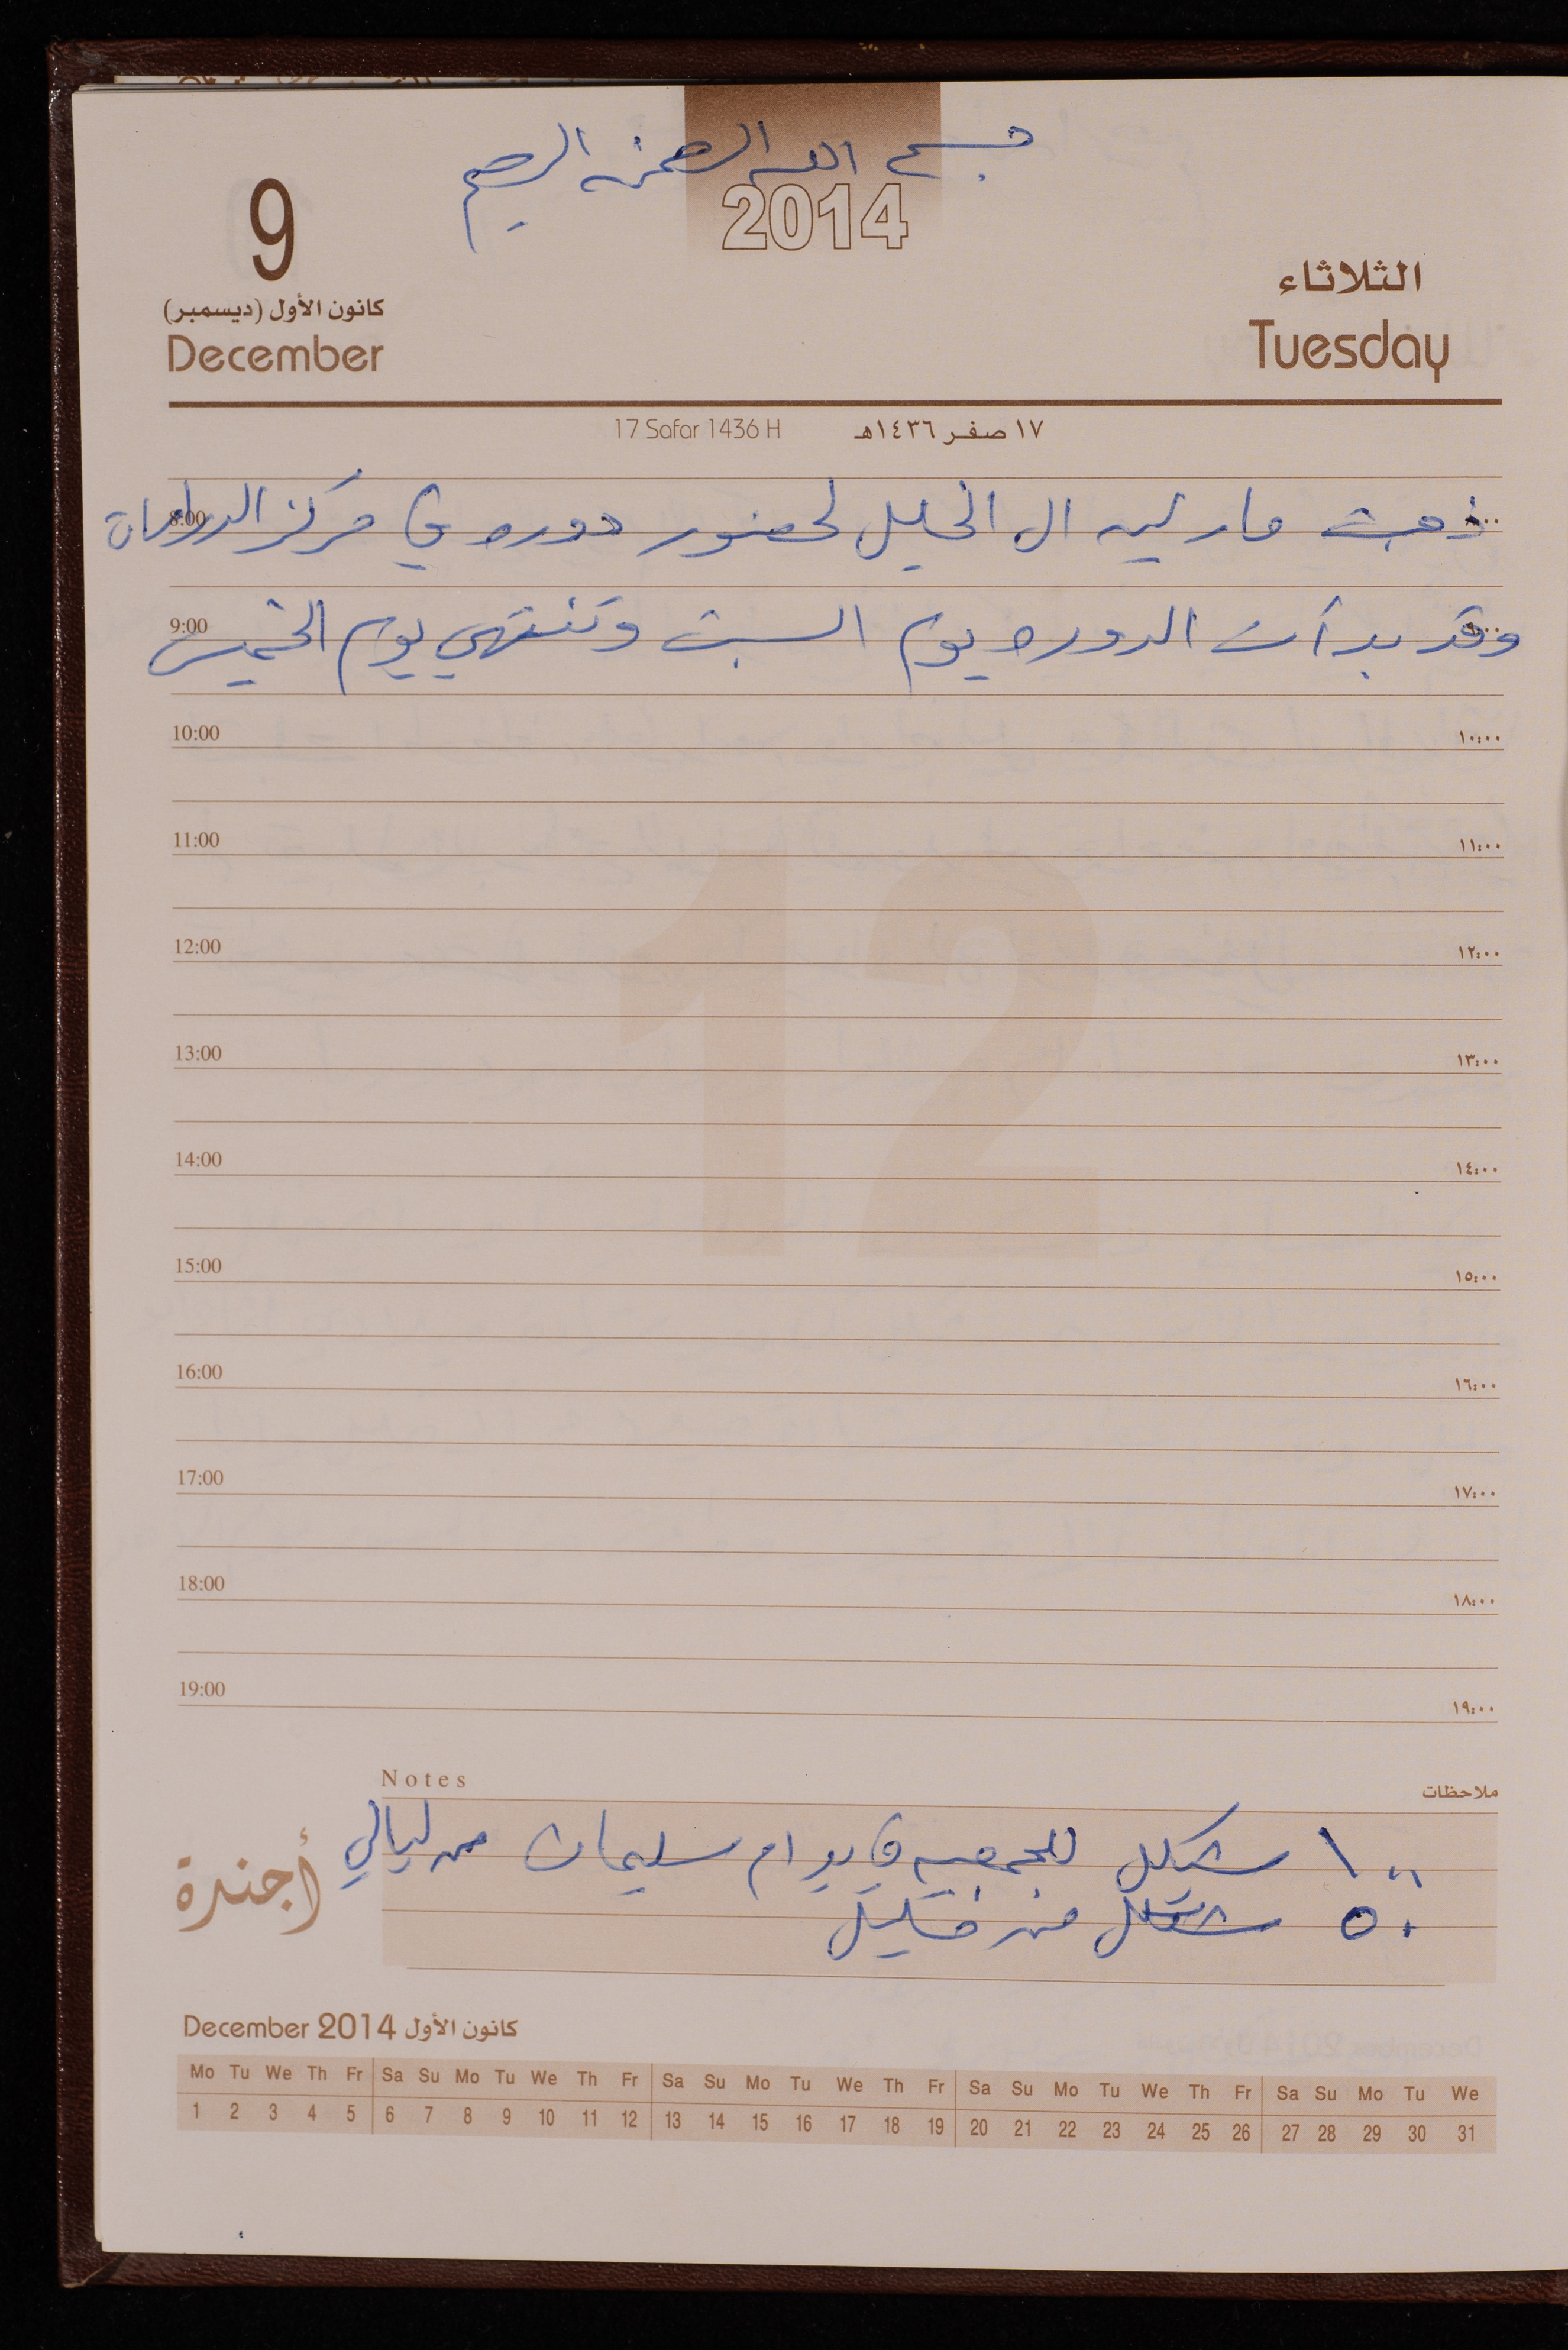 بسم الله الرحمن الرحيم
2014
9
كانون الأول (ديسمبر)
December
الثلاثاء
Tuesday
17 Safar 1436 H
١٧ صفر ١٤٣٦هـ
8:00
ذهبت مارليه ال الخليل لحضور دوره في مركز الدراسات
9:00
وقد بدأت الدوره يوم السبت وتنتهي يوم الخميس
10:00 ١٠:٠٠
11:00 ١١:٠٠
12:00 ١٢:٠٠
12
13:00 ١٣:٠٠
14:00 ١٤:٠٠
15:00 ١٥:٠٠
16:00 ١٦:٠٠
17:00 ١٧:٠٠
18:00 ١٨:٠٠
19:00 ١٩:٠٠
Notes ملاحظات
١٠٠ شيكل للجمعيه في يد ام سليمان من ليالي
٥٠ شيقل من
أجندة
December 2014 كانون الأول
Mo Tu We Th Fr Sa Su Mo Tu We Th Fr Sa Su Mo Tu We Th Fr Sa Su Mo Tu We Th Fr Sa Su Mo Tu We
1 2 3 4 5 6 7 8 9 10 11 12 13 14 15 16 17 18 19 20 21 22 23 24 25 26 27 28 29 30 31